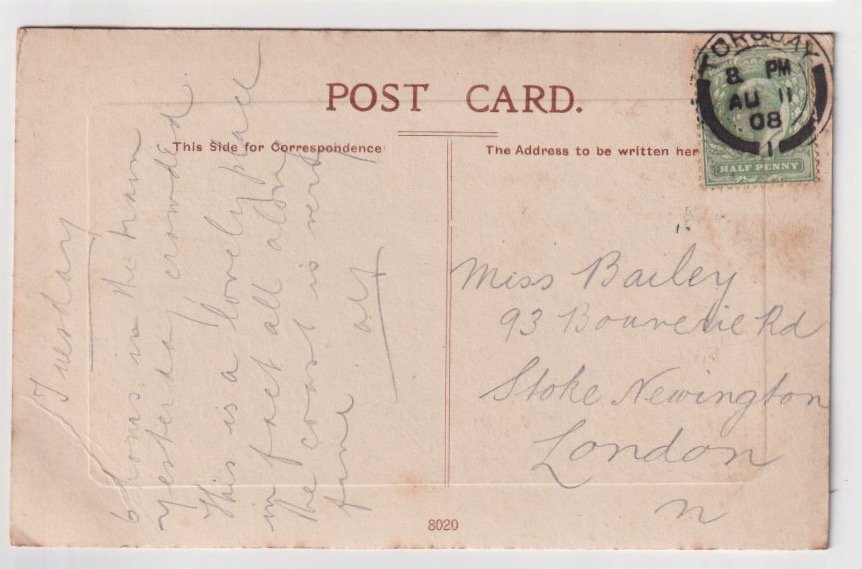 POST CARD.
This Side for Correspondence
The Address to be written her
TORQUAY
8 PM
AU 11
08
1
HALF PENNY
Tuesday
6 hours in the train
yesterday, crowded
This is a lovely place
in fact all along
the coast is very
fine. Alf
Miss Bailey
93 Bouverie Rd
Stoke Newington
London
N
8020